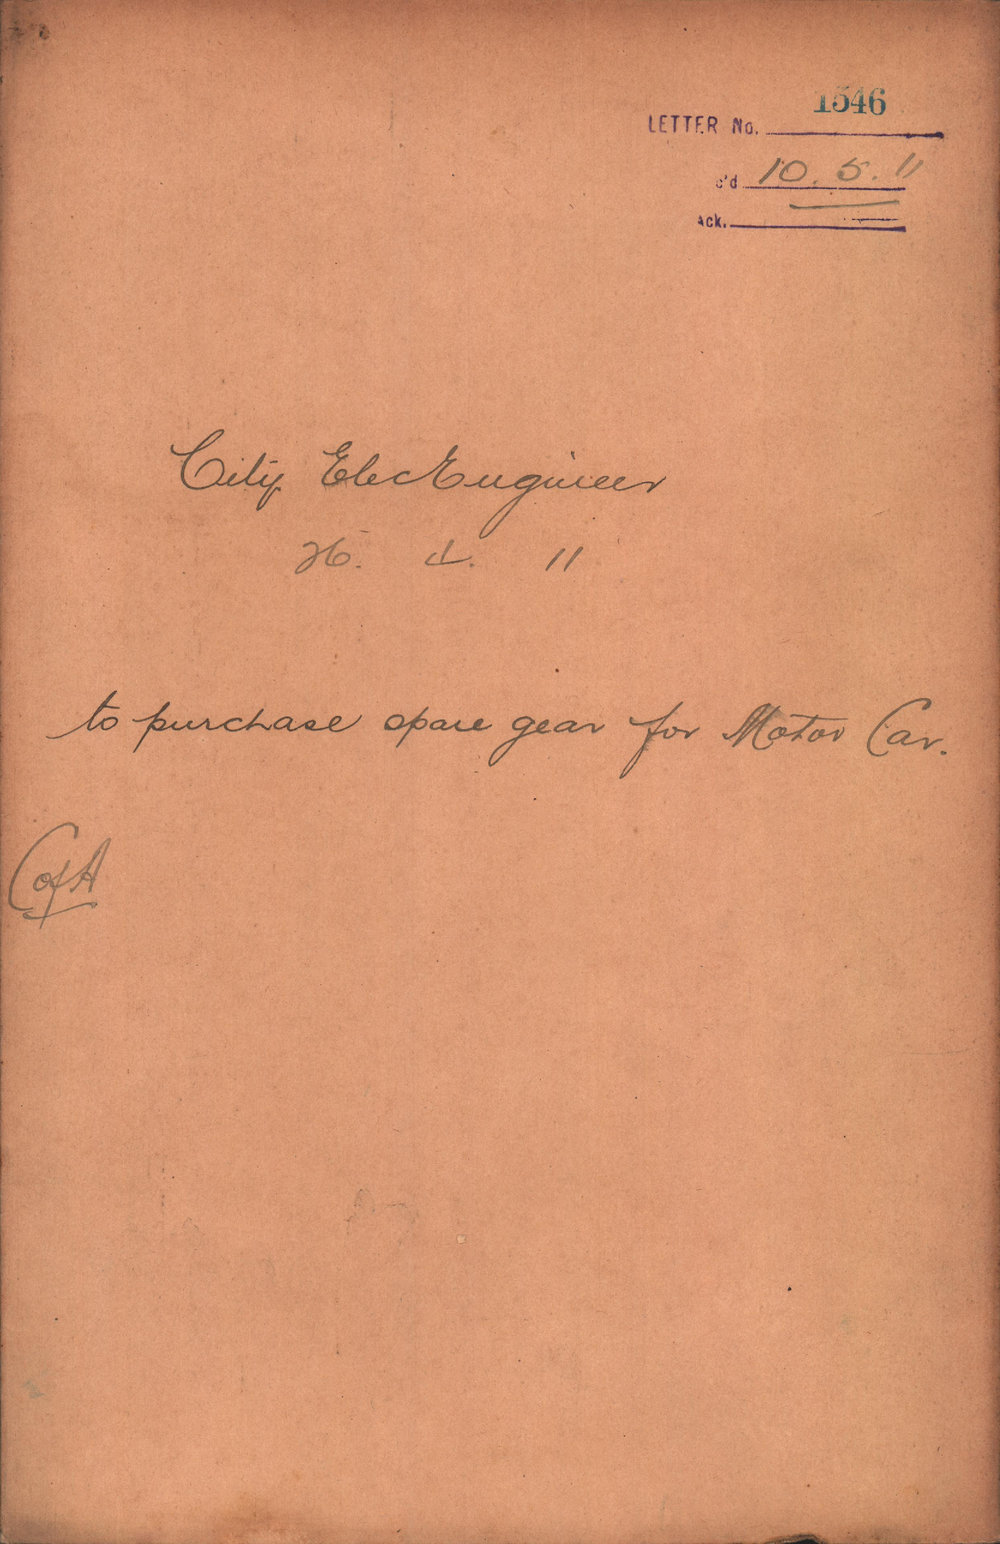 1546
LETTER No.
c'd 10. 5. 11
Ack.
City Elec Engineer
26. 4. 11
to purchase spare gear for Motor Car.
C of A